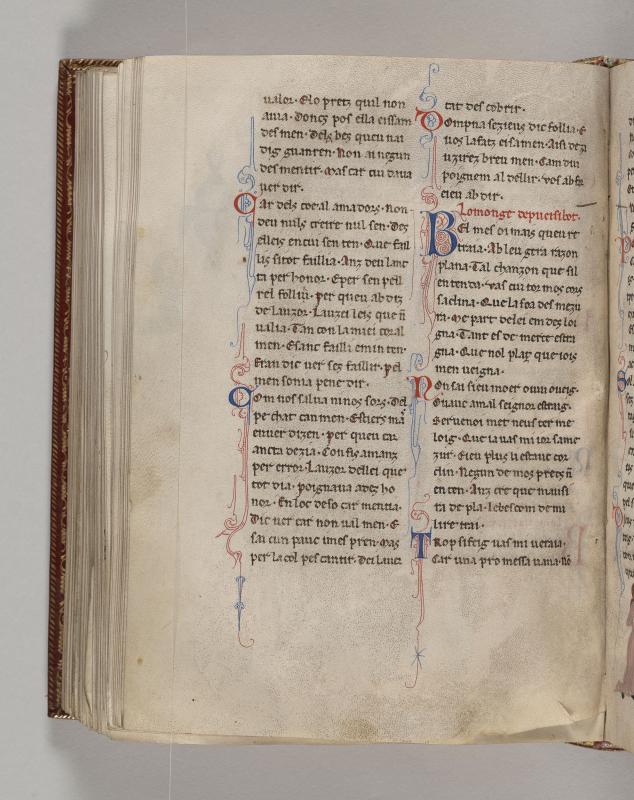 ualor· Elo pretz quil non
auia· Doncs pos ella eissam
des men· Dels bes queu nai
dig guanren· Non ai negun
des mentir· Mas car cui daua
uer dir·
Car dels coral amadors· non
deu nuls creire nul sen· Des
elleis en cui sen ten· Que fail
lis si tot faillia· Anz deu lauc
ta per honor· E per sen
rel follia· per queu ab diz
de lauzor· Lauzei leis que ñ
ualia· Tan con lamiei coral
men· Esanc failli em in ten·
Eran dic uer ses faillir· pel
men sonia pene dir·
Com uos salua mi nos sors· Del
pechat can men· Estiers mā
enuer dizen· per queu car
ancta dezia· Con fis amanz
per error· Lauzor dellei que
tot dia· poignaua adez ho
nor· En loc de so car mentia·
Dic uer car non ual men· E
sai cun pauc mes pren· Mas
per la col pes cantir· Dei lauer
tat des cobrir·
Dompna sezieus dic follia· E
uos lafatz eisamen· Aisi de
uzirez breu men· Cam dui
poignem al dellir· uos ab
eieu ab dir·
Lo monge depueisibot·
Bel mes oi mais queu re
traia· Ab leugera razon
plana· Tal chanzon que sil
entenda· vas cui tor mos cors
saclina· Que la soa des mezu
ra· Me part de lei em des loi
gna· Tant es de merce estra
gna· Que nol plaz que iois
men ueigna·
Non sai sieu moer o uiu o ueig·
O uauc amal seignor estraig·
Seruenoi met neus ter me
loig· Que ia uas mi ior samc
zur· E ieu plus li estauc cor
clin· Negun de mos precs ñ
en ten· Anz cre que mausi
ra de pla· Icbescom de mi
lire trai·
Trop sifeig uas mi ueraia·
Car una promessa uana· nō